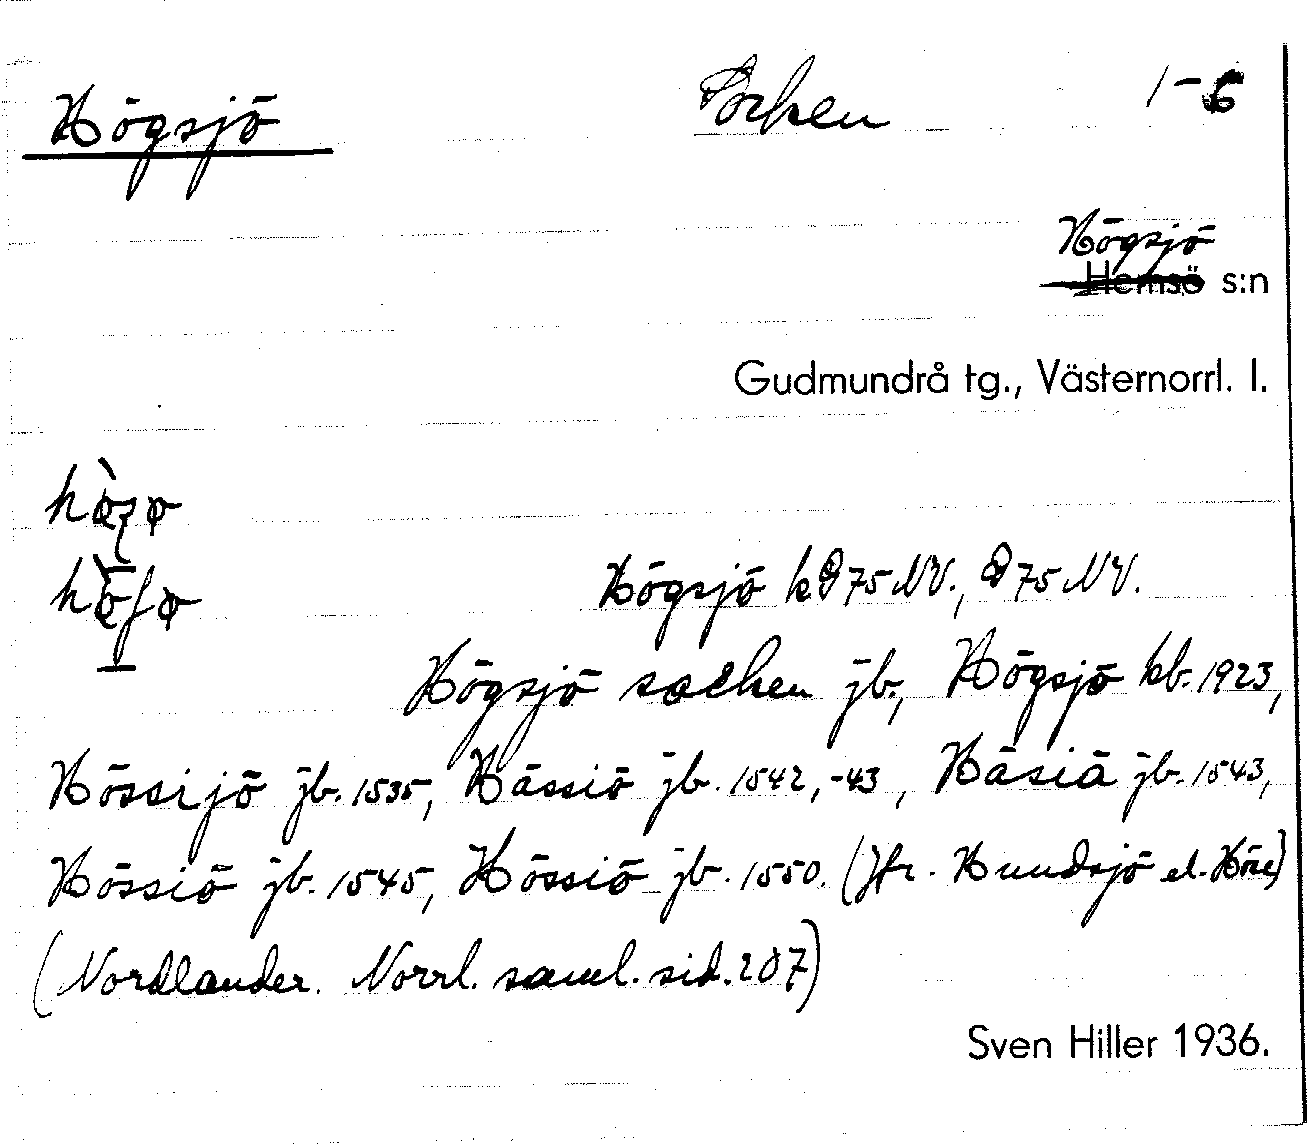 Högsjö Socken 1-6
Högsjö
Hemsö s:n
Gudmundrå tg., Västernorrl. l.
Högsjö k 75 NV., 75 NV.
Högsjö socken jb., Högsjö kb. 1923,
Hössijö jb. 1535, Hässiö jb. 1542,-43, Häsiä jb. 1543,
Hössiö jb. 1545, Hössiö jb. 1550. (Jfr. Hundsjö el.
(Nordlander. Norrl. saml. sid. 207)
Sven Hiller 1936.